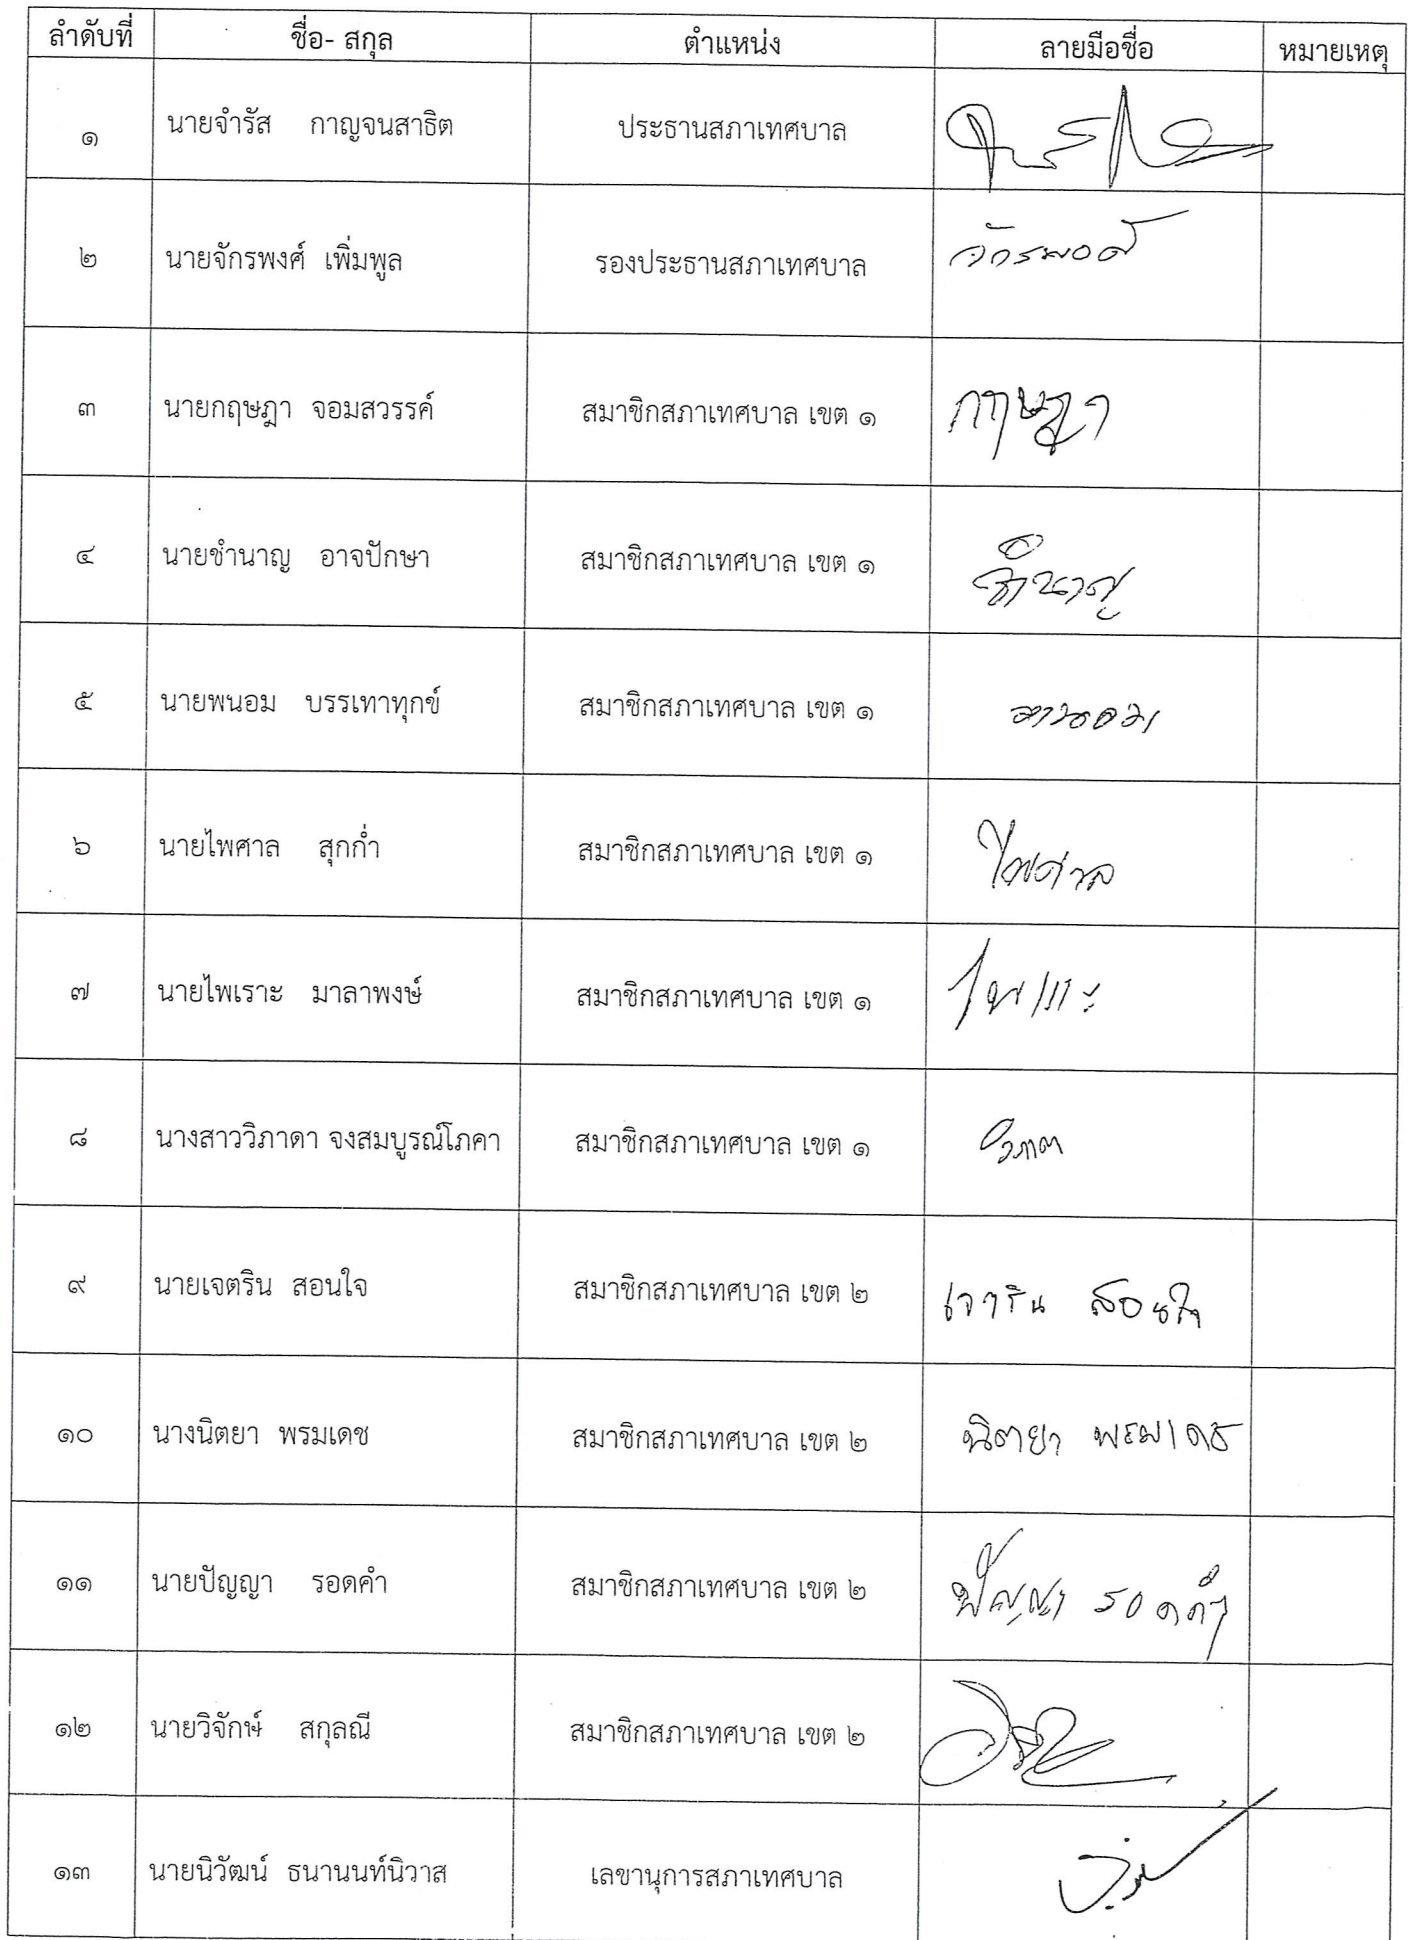 ลำดับที่ ชื่อ- สกุล ตำแหน่ง ลายมือชื่อ หมายเหตุ
๑ นายจำรัส กาญจนสาธิต ประธานสภาเทศบาล
๒ นายจักรพงศ์ เพิ่มพูล รองประธานสภาเทศบาล จักรพงศ์
๓ นายกฤษฎา จอมสวรรค์ สมาชิกสภาเทศบาล เขต ๑ กฤษฎา
๔ นายชำนาญ อาจปักษา สมาชิกสภาเทศบาล เขต ๑ ชำนาญ
๕ นายพนอม บรรเทาทุกข์ สมาชิกสภาเทศบาล เขต ๑
๖ นายไพศาล สุกก่ำ สมาชิกสภาเทศบาล เขต ๑ ไพศาล
๗ นายไพเราะ มาลาพงษ์ สมาชิกสภาเทศบาล เขต ๑ ไพเราะ
๘ นางสาววิภาดา จงสมบูรณ์โภคา สมาชิกสภาเทศบาล เขต ๑ วิภาดา
๙ นายเจตริน สอนใจ สมาชิกสภาเทศบาล เขต ๒ เจตริน สอนใจ
๑๐ นางนิตยา พรมเดช สมาชิกสภาเทศบาล เขต ๒ นิตยา พรมเดช
๑๑ นายปัญญา รอดคำ สมาชิกสภาเทศบาล เขต ๒ ปัญญา รอดคำ
๑๒ นายวิจักษ์ สกุลณี สมาชิกสภาเทศบาล เขต ๒
๑๓ นายนิวัฒน์ ธนานนท์นิวาส เลขานุการสภาเทศบาล